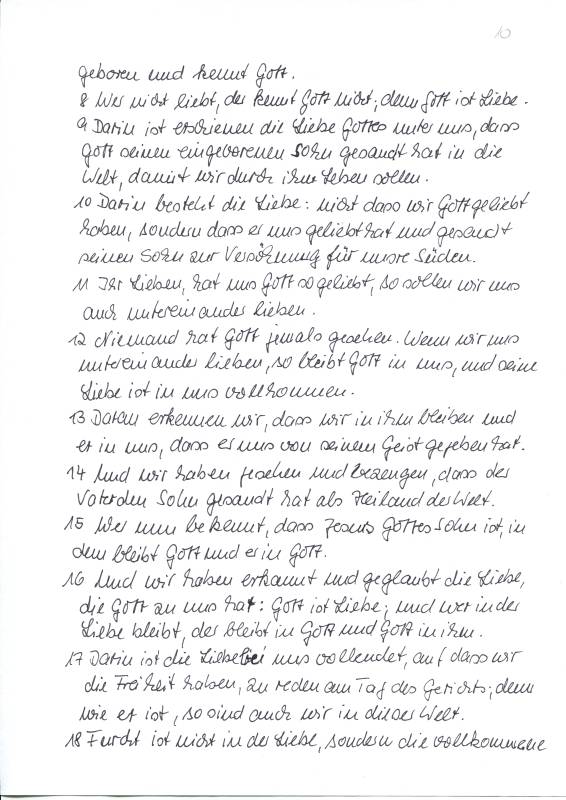 10
geboren und kennt Gott.
8 Wer nicht liebt, der kennt Gott nicht; denn Gott ist Liebe.
9 Darin ist erschienen die Liebe Gottes unter uns, dass
Gott seinen eingeborenen Sohn gesandt hat in die
Welt, damit wir durch ihn leben sollen.
10 Darin besteht die Liebe: nicht dass wir Gott geliebt
haben, sondern dass er uns geliebt hat und gesandt
seinen Sohn zur Versöhnung für unsre Süden.
11 Ihr Lieben, hat uns Gott so geliebt, so sollen wir uns
auch untereinander lieben.
12 Niemand hat Gott jemals gesehen. Wenn wir uns
untereinander lieben, so bleibt Gott in uns, und seine
Liebe ist in uns vollkommen.
13 Daran erkennen wir, dass wir in ihm bleiben und
er in uns, dass er uns von seinem Geist gegeben hat.
14 Und wir haben gesehen und bezeugen, dass der
Vater den Sohn gesandt hat als Heiland der Welt.
15 Wer nun bekennt, dass Jesus Gottes Sohn ist, in
dem bleibt Gott und er in Gott.
16 Und wir haben erkannt und geglaubt die Liebe,
die Gott zu uns hat: Gott ist Liebe; und wer in der
Liebe bleibt, der bleibt in Gott und Gott in ihm.
17 Darin ist die Liebe bei uns vollendet, auf dass wir
die Freiheit haben, zu reden am Tag des Gerichts; denn
wie er ist, so sind auch wir in dieser Welt.
18 Furcht ist nicht in der Liebe, sondern die vollkommene